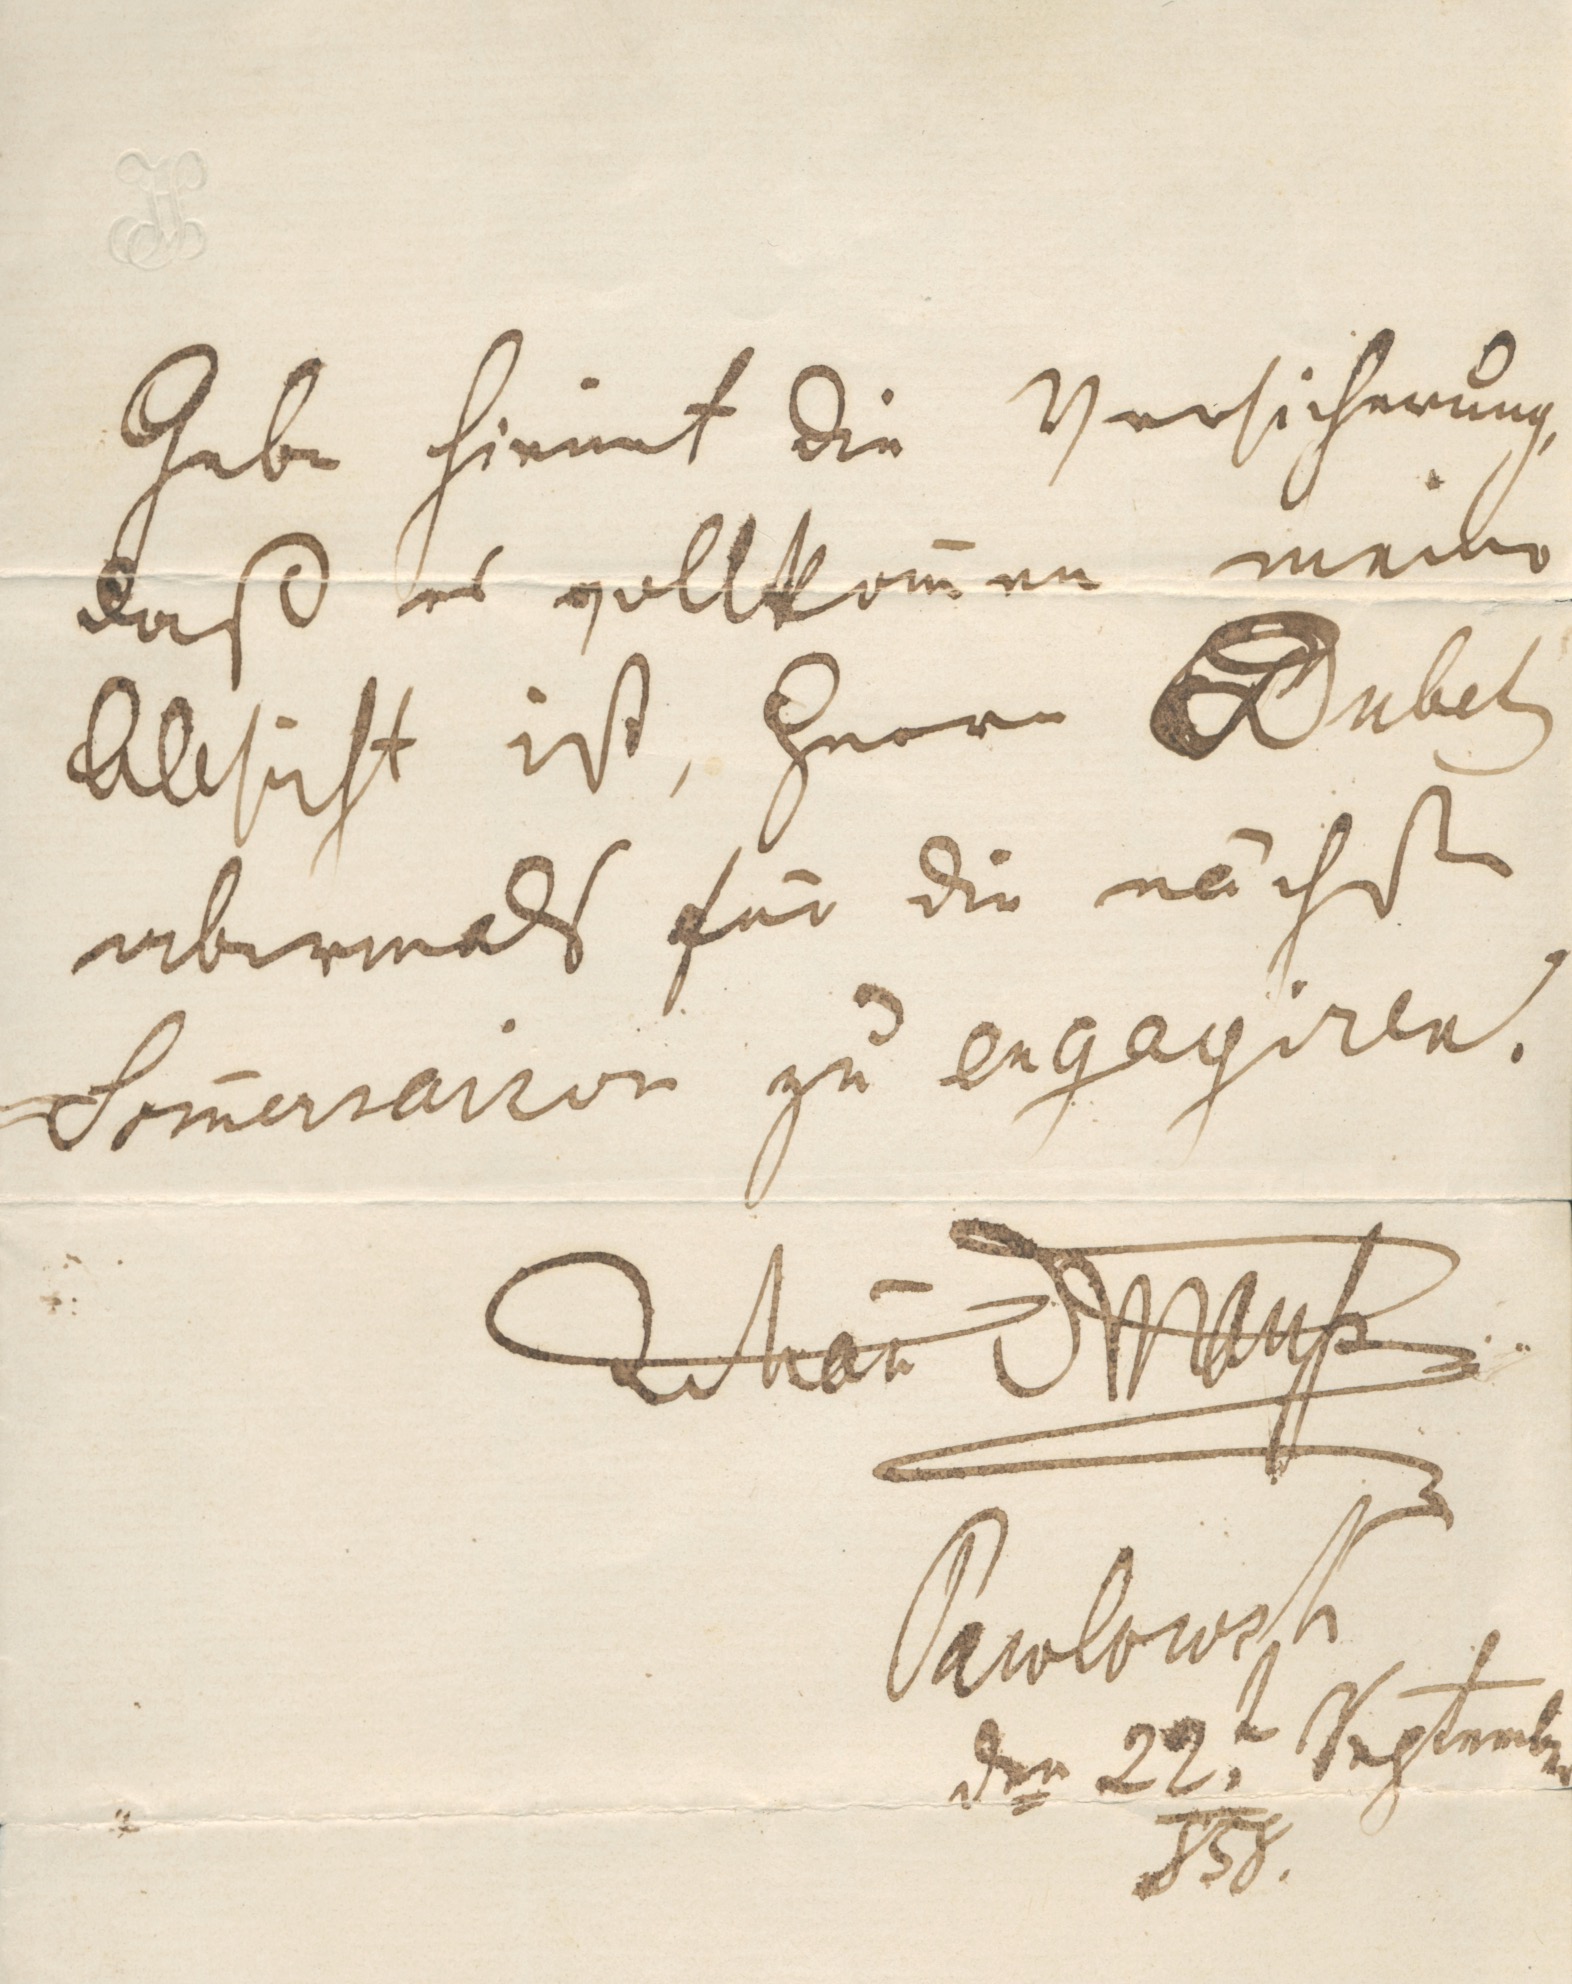 Gebe hiemit die Versicherung,
daß es vollkom̅en meine
Absicht ist, Herrn Dubez
abermals für die nächste
Som̅ersaison zu engagiren.
Johan̅ Strauß
Pawlowsk
den 22t September
858.